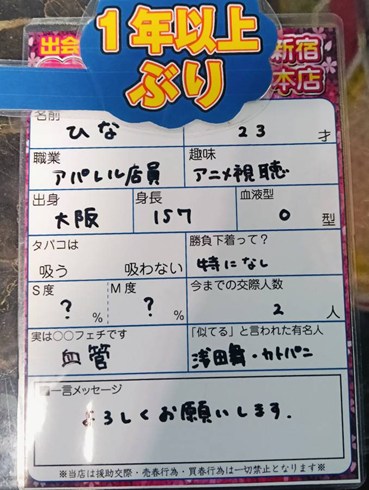 出会
1年以上
ぶり
新宿
本店
名前
ひな 23 才
職業 趣味
アパレル店員 アニメ視聴
出身 身長 血液型
大阪 157 O 型
タバコは 勝負下着って?
吸う 吸わない 特になし
S度 M度 今までの交際人数
? % ? % 2 人
実は○○フェチです 「似てる」と言われた有名人
血管 浅田舞・カトパン
一言メッセージ
よろしくお願いします.
※当店は援助交際・売春行為・買春行為は一切禁止となります※